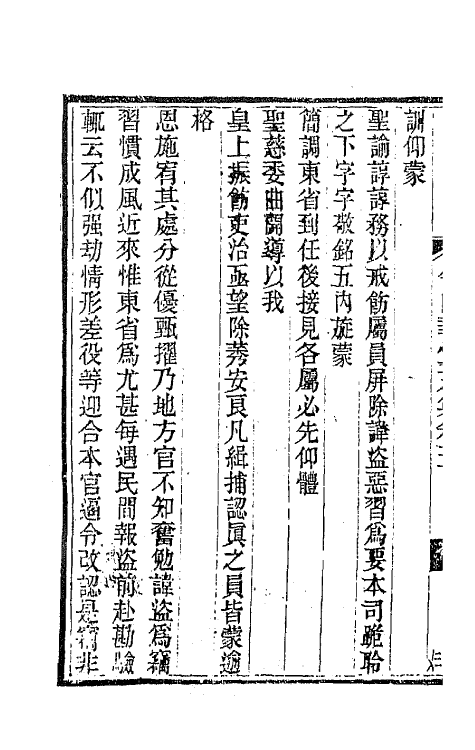 訓仰蒙
聖諭諄諄務以戒飭屬員屏除諱盜惡習爲要本司跪聆
之下字字敬銘五內旋蒙
簡調東省到任後接見各屬必先仰體
聖慈委曲開導以我
皇上振飭吏治亟望除莠安良凡緝捕認眞之員皆蒙逾
格
恩施宥其處分從優甄擢乃地方官不知奮勉諱盜爲竊
習慣成風近來惟東省爲尤甚每遇民間報盜前赴勘驗
輒云不似强劫情形差役等迎合本官逼令改認是竊非